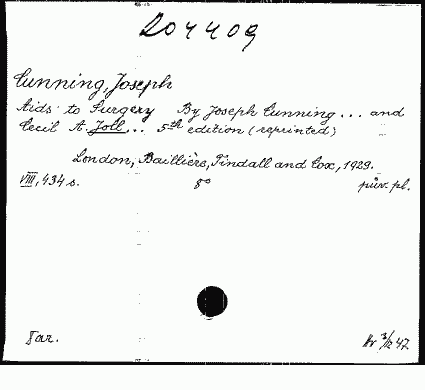 204409
Cunning, Joseph
Aids to Surgery By Joseph Cunning... and
Cecil A. Joll.. 5th edition (reprinted)
London, Baillière, Tindall and Cox, 1929.
VIII, 434 s. 8° pův. pl.
Dar. Hr 3/12 47